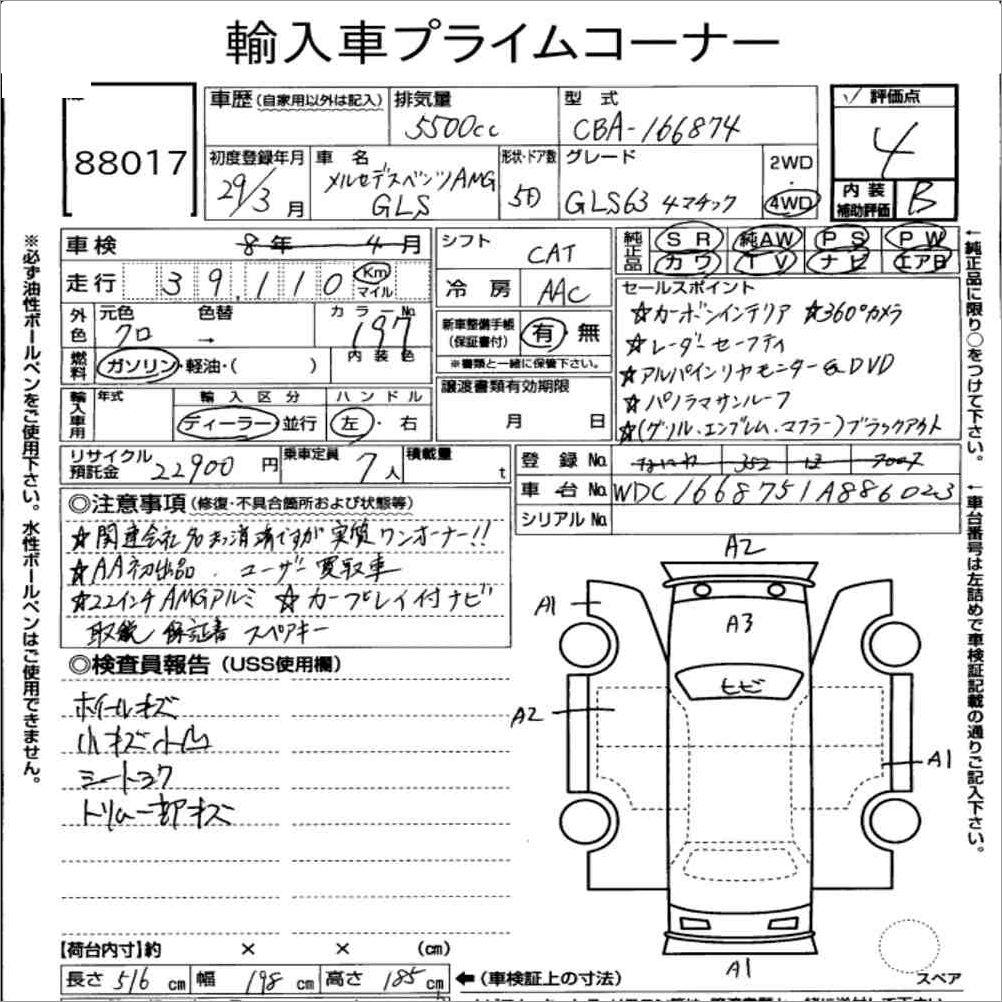 輸入車プライムコーナー
88017
車歴(自家用以外は記入) 排気量 5500cc 型式 CBA-166874
✓ 評価点 4
初度登録年月 29/3月 車名 メルセデスベンツAMG GLS 形状・ドア数 5D グレード GLS63 4マチック 2WD・4WD
内装補助評価 B
車検 8年 4月
走行 39,110 Km マイル
外色 元色 クロ 色替 → カラーNo. 197 内装色
燃料 ガソリン・軽油・( )
輸入車用 年式 輸入区分 ディーラー・並行 ハンドル 左・右
シフト CAT
冷房 AAC
新車整備手帳(保証書付) 有・無
※書類と一緒に保管下さい。
譲渡書類有効期限
月 日
純正品 SR 純AW PS PW
カワ TV ナビ エアB
セールスポイント
☆カーボンインテリア ☆360°カメラ
☆レーダーセーフティ
☆アルパインリヤモニター&DVD
☆パノラマサンルーフ
☆(グリル.エンブレム.マフラー)ブラックアウト
リサイクル預託金 22900円 乗車定員 7人 積載量 t
登録No. なにわ 352
車台No. WDC1668751A886023
シリアルNo.
◎注意事項(修復・不具合箇所および状態等)
☆関連会社名まっ消済ですが実質ワンオーナー!!
☆AA初出品. ユーザー買取車
☆22インチAMGアルミ ☆カープレイ付ナビ
取説 保証書 スペアキー
◎検査員報告(USS使用欄)
ホイールキズ
小キズ小凹
シートヨゴ
トリム一部キズ
A2
A1
A3
A1
ヒビ
A2
A1
A1
スペア
【荷台内寸】約 × × (cm)
長さ 516 cm 幅 198 cm 高さ 185 cm ←(車検証上の寸法)
※必ず油性ボールペンをご使用下さい。水性ボールペンはご使用できません。
←純正品に限り○をつけて下さい。
←車台番号は左詰めで車検証記載の通りご記入下さい。